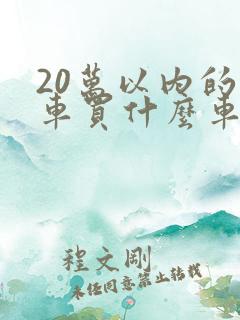 20萬以内的
車買什麽車
程文剛
未经同意禁止转载